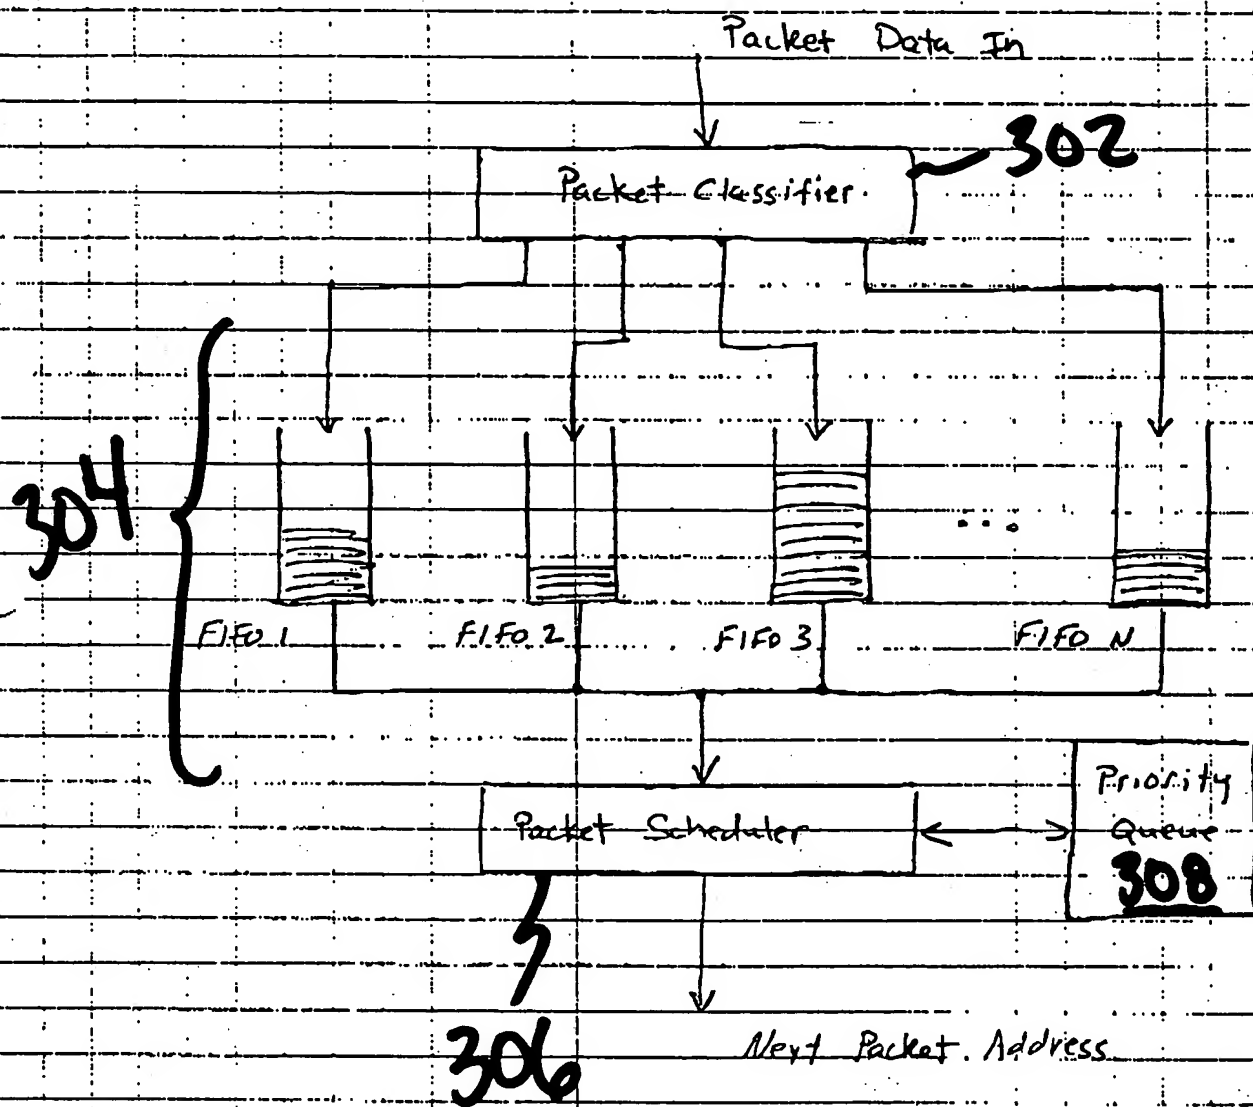 Packet Data In
302
Packet Classifier
304
...
FIFO 1
FIFO 2
FIFO 3
FIFO N
Packet Scheduler
Priority
Queue
308
306
Next Packet Address